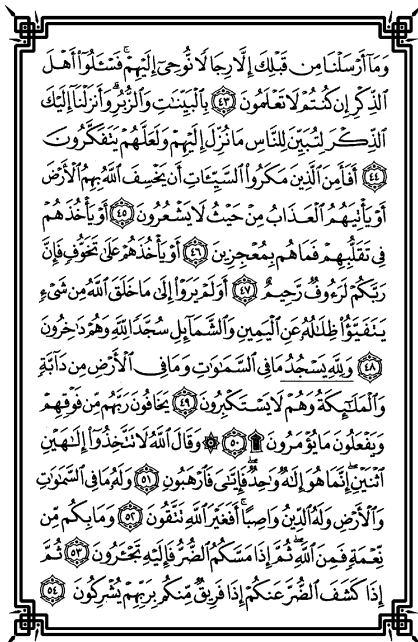 وَمَآ أَرْسَلْنَا مِن قَبْلِكَ إِلَّا رِجَالًا نُّوحِىٓ إِلَيْهِمْ ۚ فَسْـَٔلُوٓا۟ أَهْلَ
ٱلذِّكْرِ إِن كُنتُمْ لَا تَعْلَمُونَ ٤٣ بِٱلْبَيِّنَـٰتِ وَٱلزُّبُرِ ۗ وَأَنزَلْنَآ إِلَيْكَ
ٱلذِّكْرَ لِتُبَيِّنَ لِلنَّاسِ مَا نُزِّلَ إِلَيْهِمْ وَلَعَلَّهُمْ يَتَفَكَّرُونَ
٤٤ أَفَأَمِنَ ٱلَّذِينَ مَكَرُوا۟ ٱلسَّيِّـَٔاتِ أَن يَخْسِفَ ٱللَّهُ بِهِمُ ٱلْأَرْضَ
أَوْ يَأْتِيَهُمُ ٱلْعَذَابُ مِنْ حَيْثُ لَا يَشْعُرُونَ ٤٥ أَوْ يَأْخُذَهُمْ
فِى تَقَلُّبِهِمْ فَمَا هُم بِمُعْجِزِينَ ٤٦ أَوْ يَأْخُذَهُمْ عَلَىٰ تَخَوُّفٍ فَإِنَّ
رَبَّكُمْ لَرَءُوفٌ رَّحِيمٌ ٤٧ أَوَلَمْ يَرَوْا۟ إِلَىٰ مَا خَلَقَ ٱللَّهُ مِن شَىْءٍ
يَتَفَيَّؤُا۟ ظِلَـٰلُهُۥ عَنِ ٱلْيَمِينِ وَٱلشَّمَآئِلِ سُجَّدًا لِّلَّهِ وَهُمْ دَٰخِرُونَ
٤٨ وَلِلَّهِ يَسْجُدُ مَا فِى ٱلسَّمَـٰوَٰتِ وَمَا فِى ٱلْأَرْضِ مِن دَآبَّةٍ
وَٱلْمَلَـٰٓئِكَةُ وَهُمْ لَا يَسْتَكْبِرُونَ ٤٩ يَخَافُونَ رَبَّهُم مِّن فَوْقِهِمْ
وَيَفْعَلُونَ مَا يُؤْمَرُونَ ۩ ٥٠ ۞ وَقَالَ ٱللَّهُ لَا تَتَّخِذُوٓا۟ إِلَـٰهَيْنِ
ٱثْنَيْنِ ۖ إِنَّمَا هُوَ إِلَـٰهٌ وَٰحِدٌ ۖ فَإِيَّـٰىَ فَٱرْهَبُونِ ٥١ وَلَهُۥ مَا فِى ٱلسَّمَـٰوَٰتِ
وَٱلْأَرْضِ وَلَهُ ٱلدِّينُ وَاصِبًا ۚ أَفَغَيْرَ ٱللَّهِ تَتَّقُونَ ٥٢ وَمَا بِكُم مِّن
نِّعْمَةٍ فَمِنَ ٱللَّهِ ۖ ثُمَّ إِذَا مَسَّكُمُ ٱلضُّرُّ فَإِلَيْهِ تَجْـَٔرُونَ ٥٣ ثُمَّ
إِذَا كَشَفَ ٱلضُّرَّ عَنكُمْ إِذَا فَرِيقٌ مِّنكُم بِرَبِّهِمْ يُشْرِكُونَ ٥٤